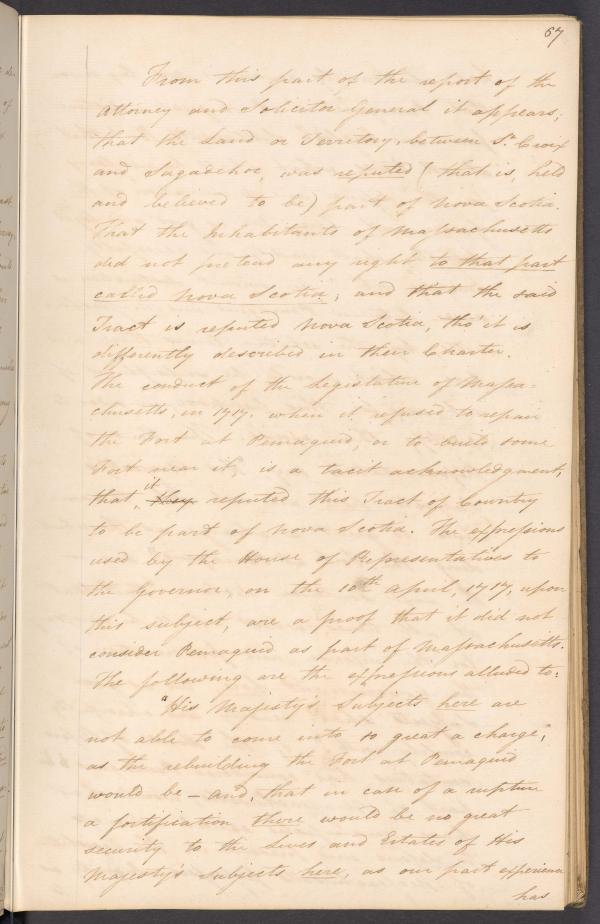 67
From this part of the report of the
Attorney and Solicitor General it appears,
that the Land or Territory, between St. Croix
and Sagadehoc, was reputed (that is, held
and believed to be) part of Nova Scotia.
That the Inhabitants of Massachusetts
did not pretend any right to that part
called Nova Scotia; and that the said
Tract is reputed Nova Scotia, tho' it is
differently described in their Charter.
The conduct of the Legislature of Massa=
chusetts, in 1717. when it refused to repair
the Fort at Pemaquid, or to build some
Fort near it, is a tacit acknowledgment,
that, it they reputed this Tract of Country
to be part of Nova Scotia. The expressions
used by the House of Representatives to
the Governor, on the 10th April, 1717, upon
this subject, are a proof that it did not
consider Pemaquid as part of Massachusetts.
The following are the expressions alluded to:
"His Majesty's Subjects here are
not able to come into so great a charge,
as the rebuilding the Fort at Pemaquid
would be – and, that in case of a rupture
a fortification there would be no great
security to the Lives and Estates of His
Majesty's Subjects here, as our past experience
has